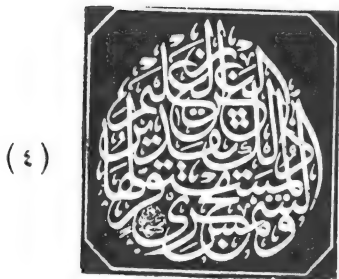 والشمس تجري
لمستقر لها
ذلك تقدير
العزيز العليم
(٤)